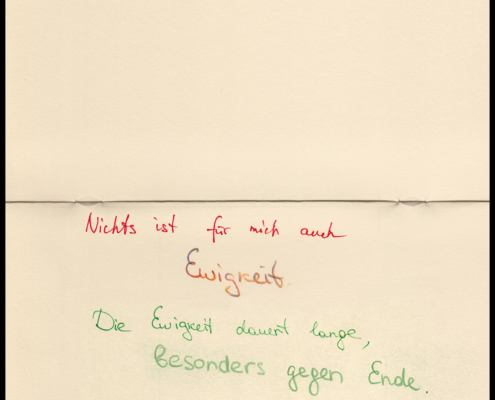 Nichts ist für mich auch
Ewigkeit.
Die Ewigkeit dauert lange,
Besonders gegen Ende.